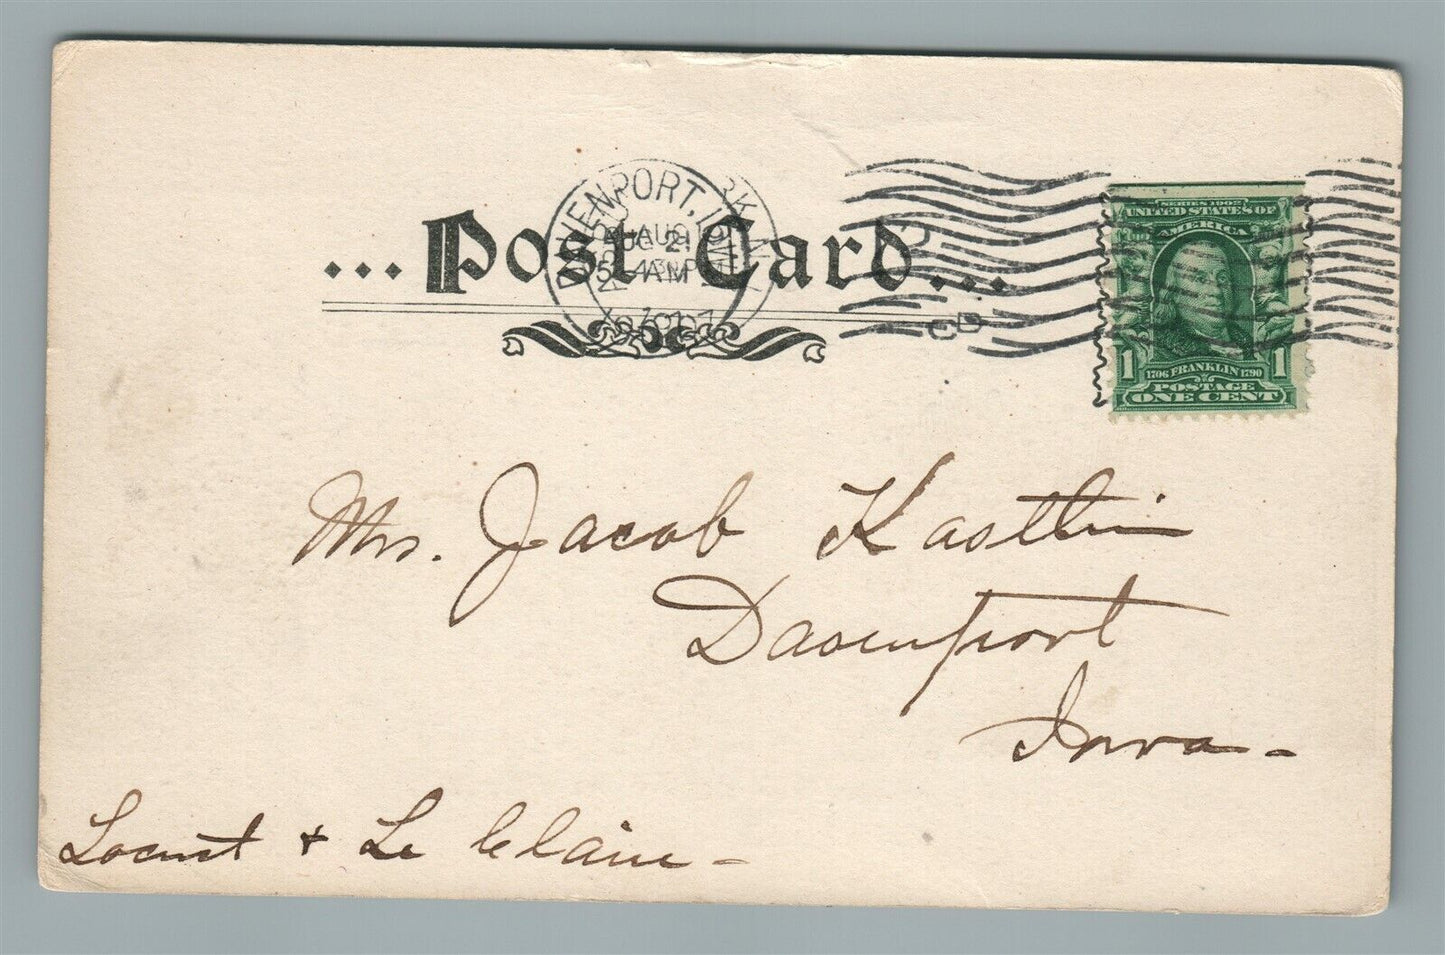 ... Post Card ...
DAVENPORT, IOWA
AUG 21
5-AM
1907
SERIES 1902
UNITED STATES OF
AMERICA
1 1706 FRANKLIN 1790 1
POSTAGE
ONE CENT
Mrs. Jacob Kastlin
Davenport
Iowa -
Locust + Le Claire -